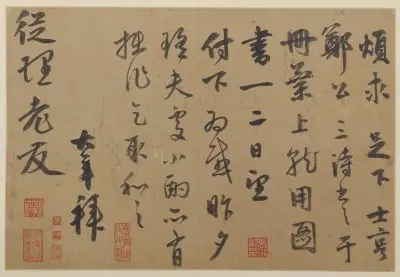 煩求 足下 士亨
鄭公三詩書于
冊葉上就用圖
書一二日望
付下為感昨夕
瑤夫處小酌亦有
拙作乞取和之
大年拜
從理老友